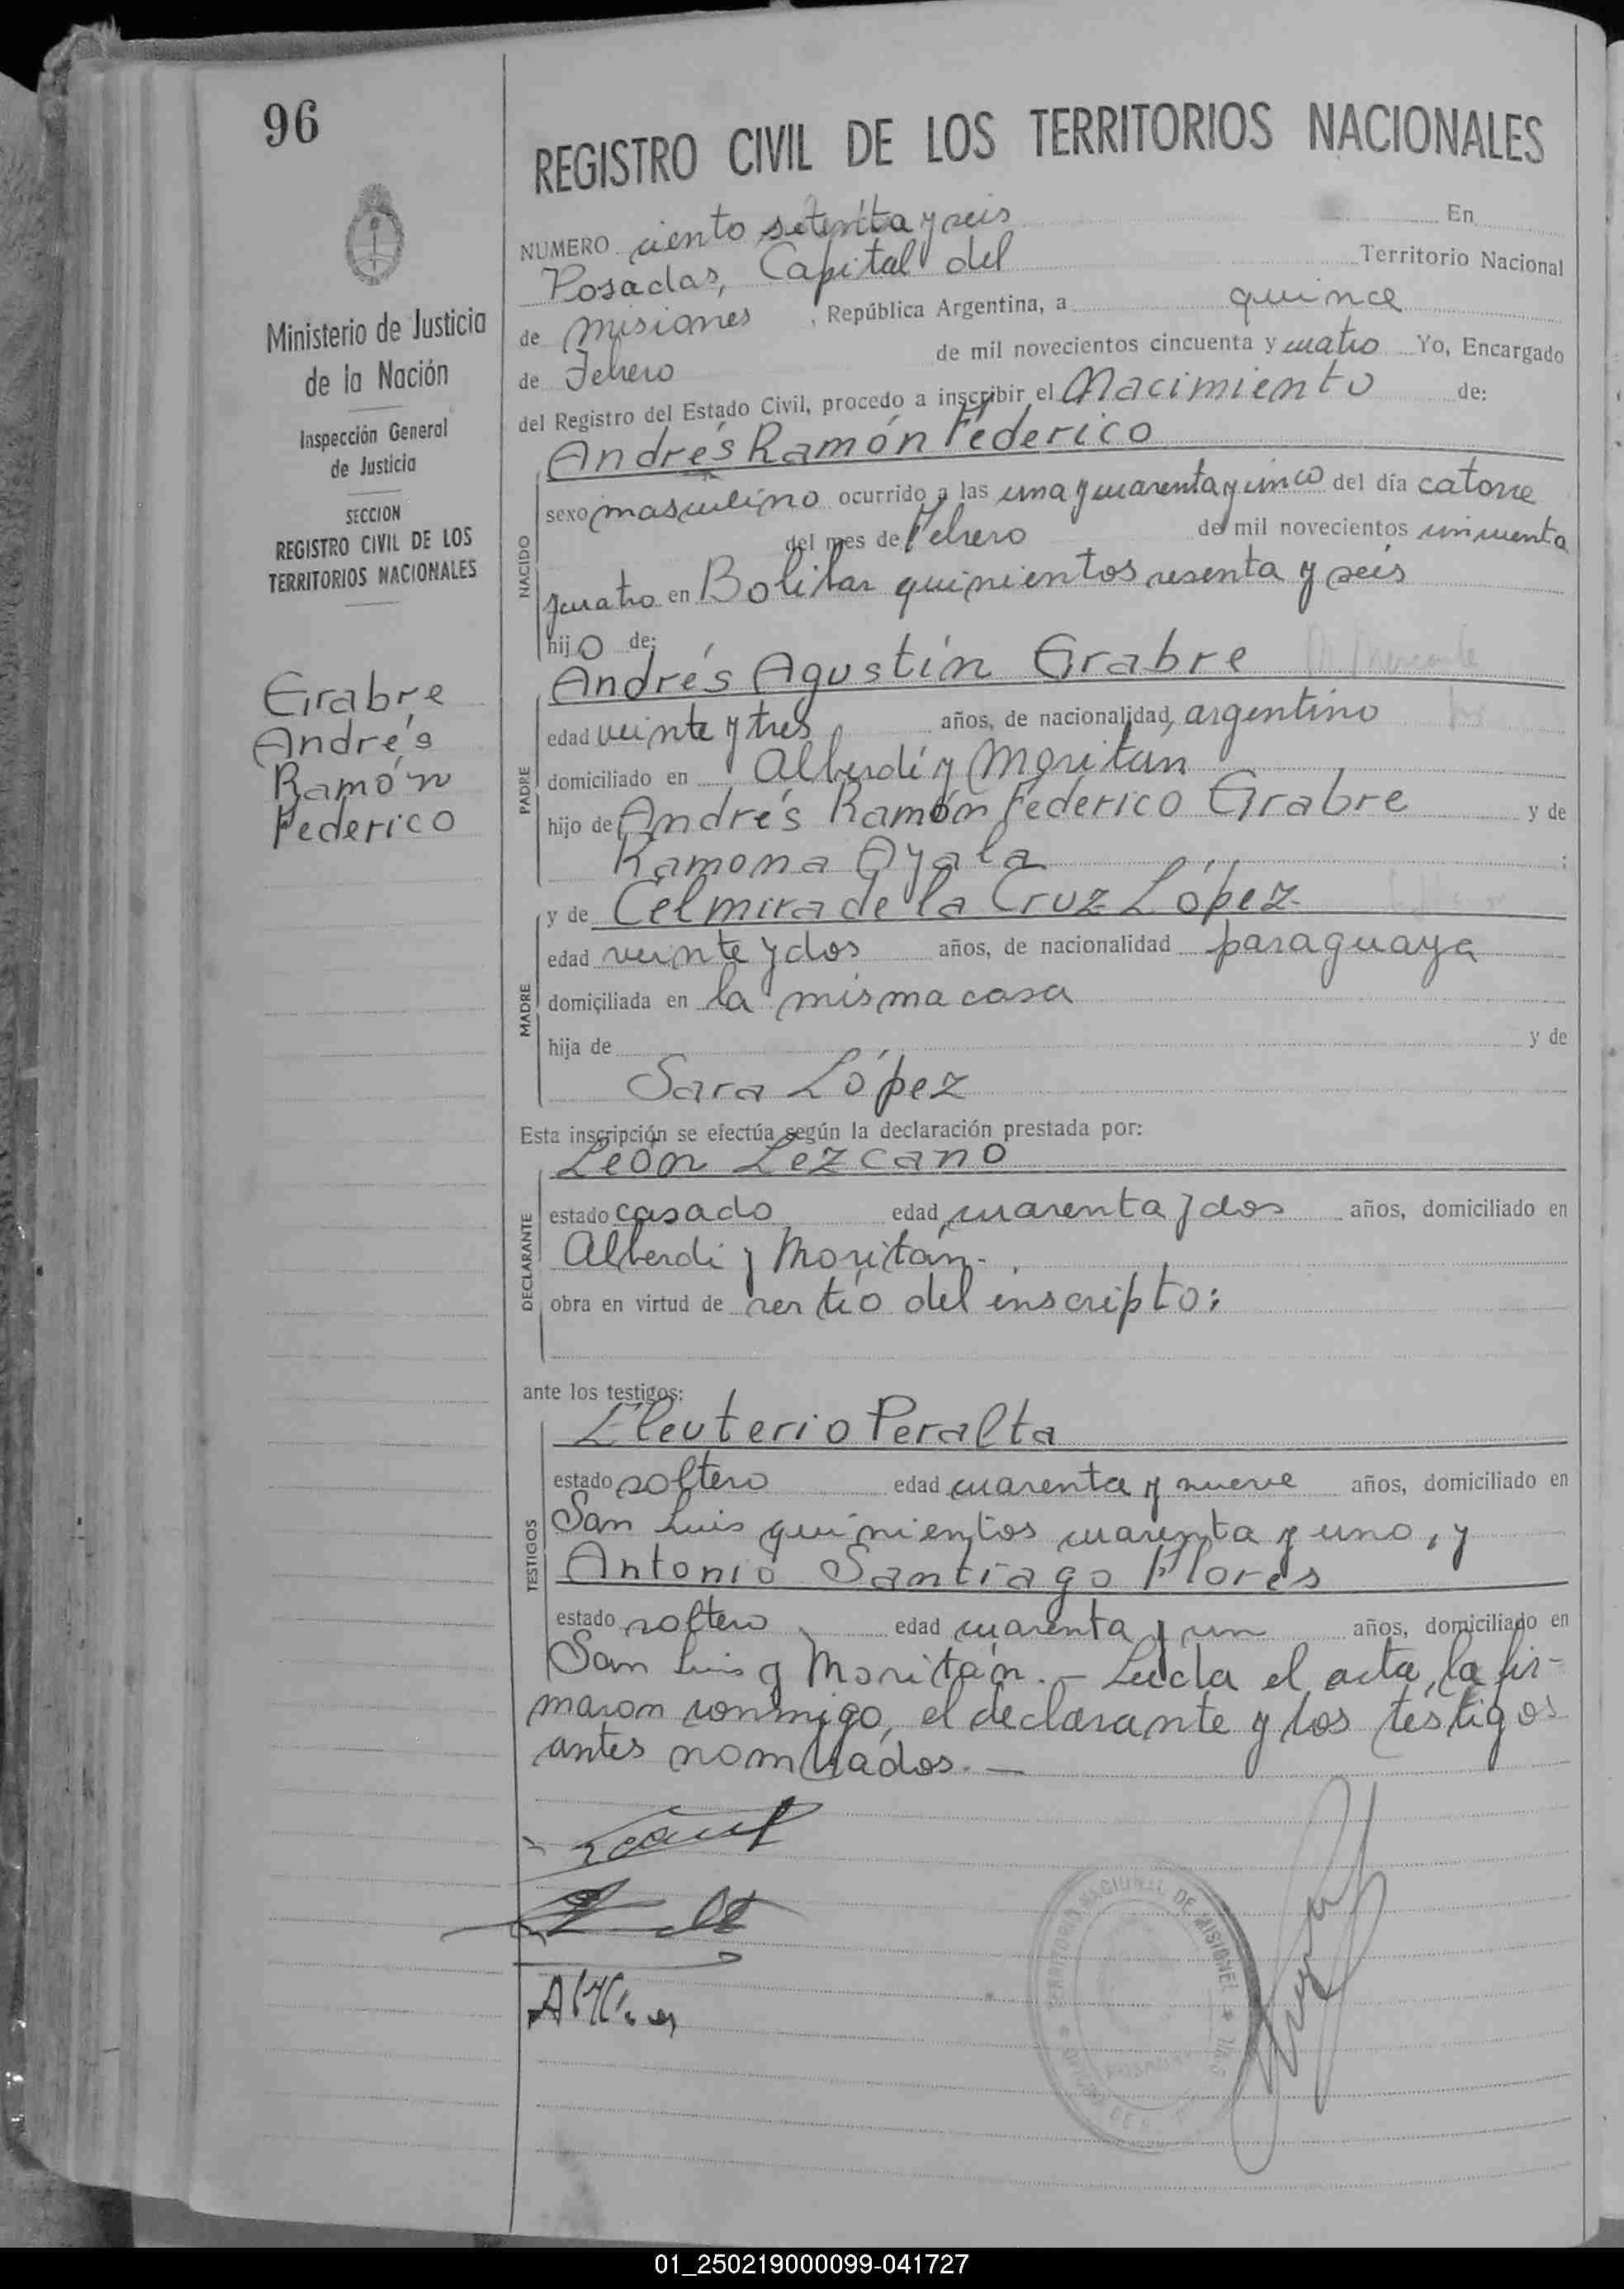 96
REGISTRO CIVIL DE LOS TERRITORIOS NACIONALES
Ministerio de Justicia
de la Nación
Inspección General
de Justicia
SECCION
REGISTRO CIVIL DE LOS
TERRITORIOS NACIONALES
Grabre
Andrés
Ramón
Federico
NUMERO ciento setenta y seis En
Posadas, Capital del Territorio Nacional
de Misiones, República Argentina, a quince
de Febrero de mil novecientos cincuenta y cuatro Yo, Encargado
del Registro del Estado Civil, procedo a inscribir el Nacimiento de:
Andrés Ramón Federico
NACIDO
sexo masculino ocurrido a las una y cuarenta y cinco del día catorce
del mes de Febrero de mil novecientos cincuenta
y cuatro en Bolivar quinientos sesenta y seis
hijo de:
Andrés Agustín Grabre
PADRE
edad veinte y tres años, de nacionalidad argentino
domiciliado en Alberdi y Moritan
hijo de Andrés Ramón Federico Grabre y de
Ramona Ayala ;
y de Celmira de la Cruz López
MADRE
edad veinte y dos años, de nacionalidad paraguaya
domiciliada en la misma casa
hija de y de
Sara López
Esta inscripción se efectúa según la declaración prestada por:
León Lezcano
DECLARANTE
estado casado edad cuarenta y dos años, domiciliado en
Alberdi y Moritán.
obra en virtud de ser tío del inscripto:
ante los testigos:
Eleuterio Peralta
TESTIGOS
estado soltero edad cuarenta y nueve años, domiciliado en
San Luis quinientos cuarenta y uno, y
Antonio Santiago Flores
estado soltero edad cuarenta y un años, domiciliado en
San Luis y Moritán. - Leída el acta, la fir-
maron conmigo, el declarante y los testigos
antes nombrados. -
TERRITORIO NACIONAL DE MISIONES
01_250219000099-041727